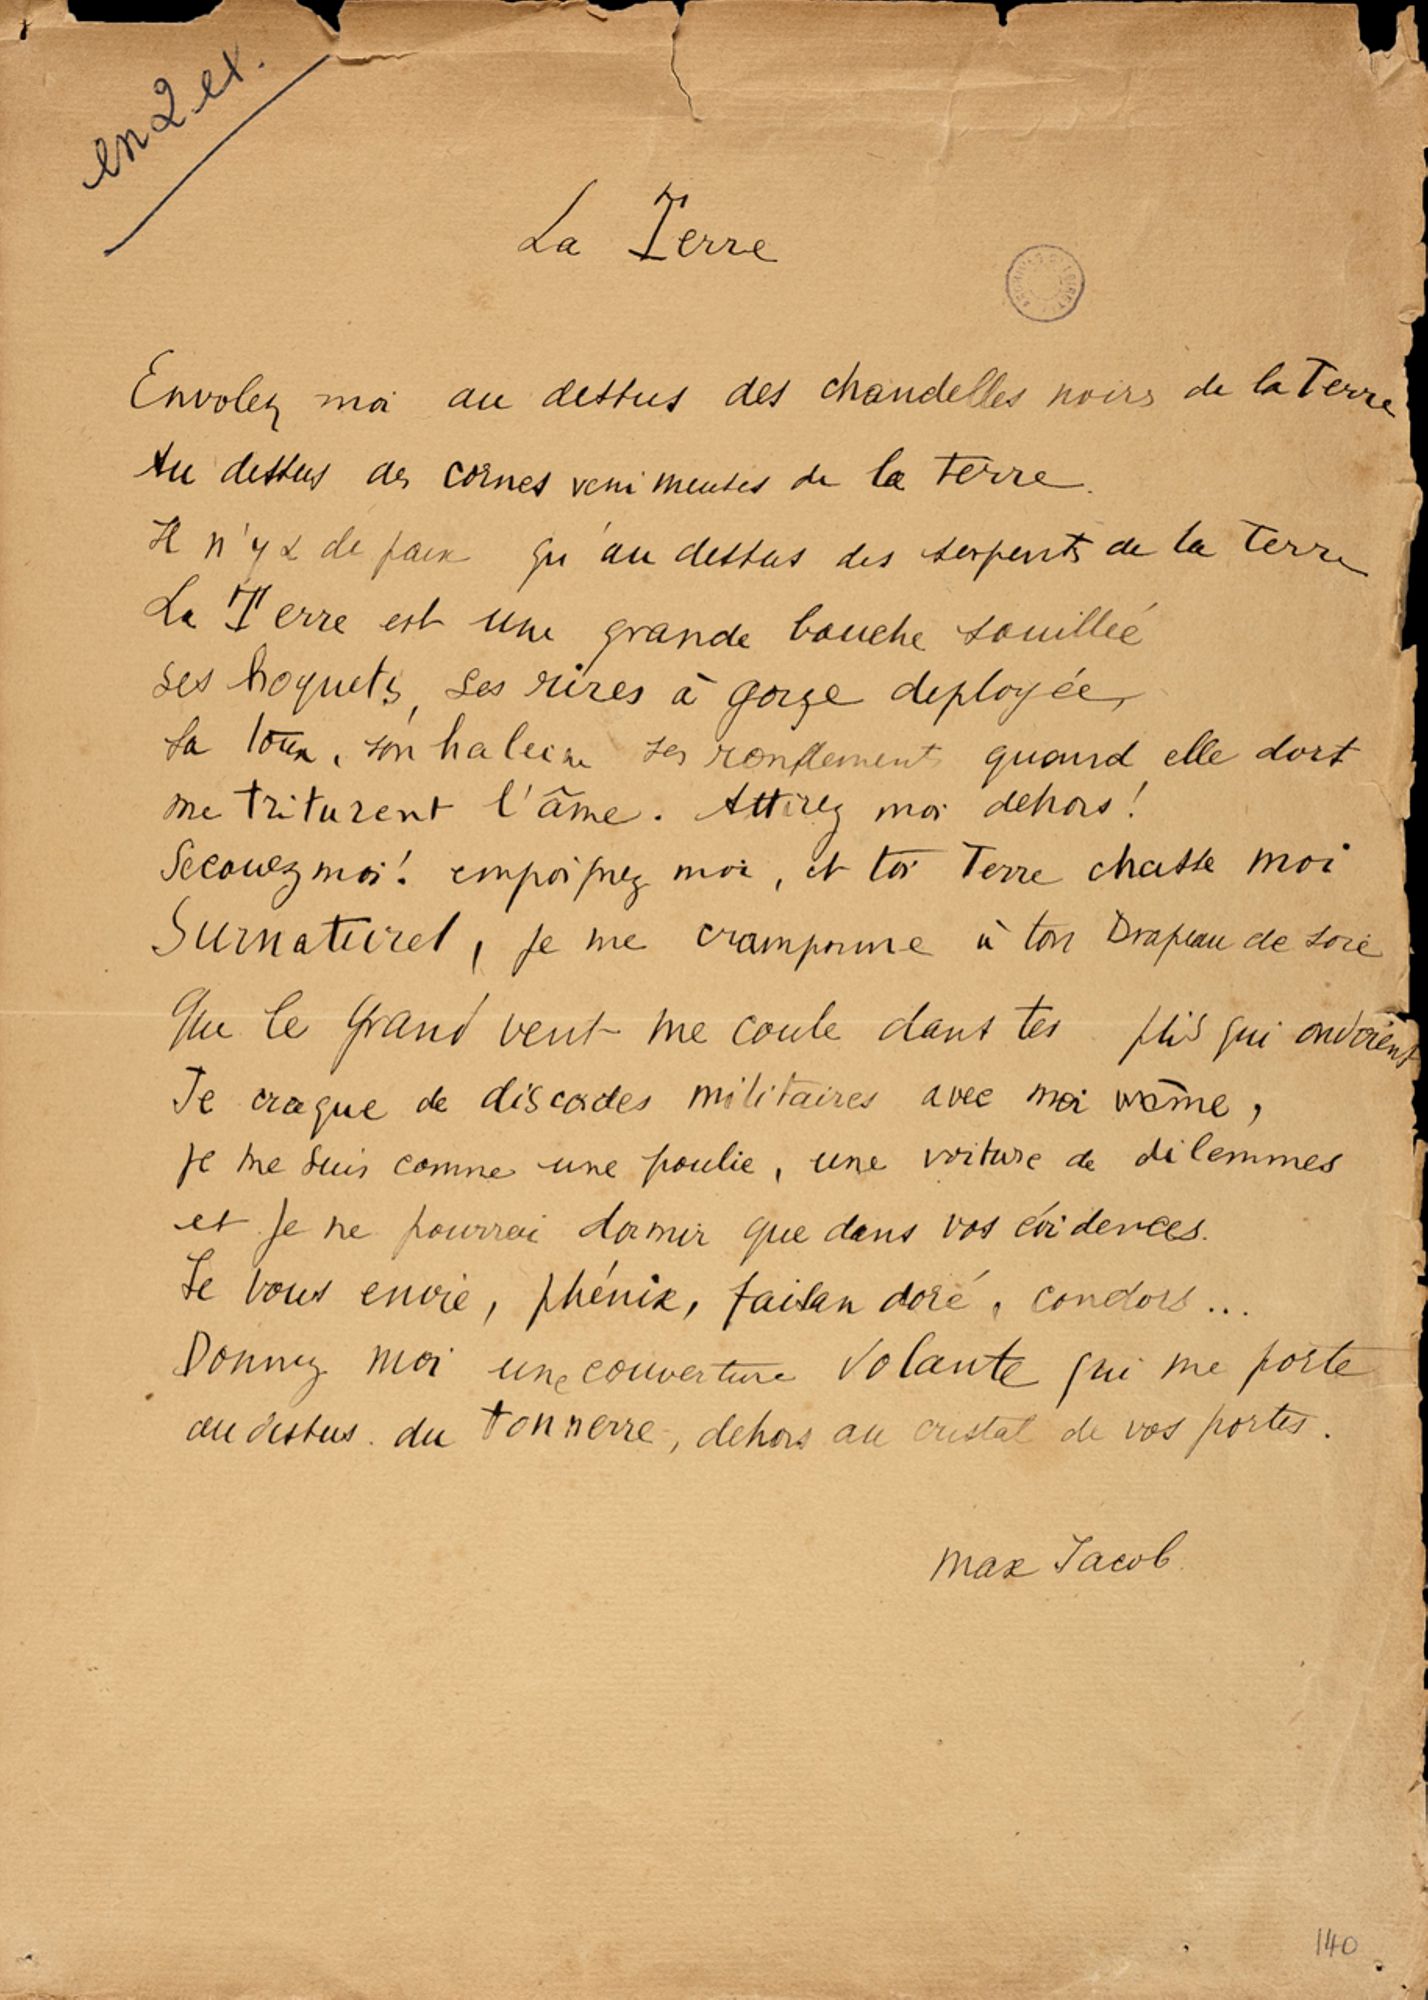 en 2 ex.
La Terre
Envolez moi au dessus des chandelles noirs de la Terre
Au dessus des cornes venimeuses de la Terre.
Il n'y a de paix qu'au dessus des serpents de la Terre
La Terre est une grande bouche souilleé
ses hoquets, ses rires à gorge deployée,
sa toux, son haleine ses ronflements quand elle dort
me triturent l'âme. Attirez moi dehors!
Secouez moi! empoignez moi, et toi Terre chasse moi
Surnaturel, je me cramponne à ton Drapeau de soie
Que le grand vent me coule dans tes plis qui ondoient
Je craque de discordes militaires avec moi même,
je me suis comme une poulie, une voiture de dilemmes
et je ne pourrai dormir que dans vos évidences.
Je vous envie, phénix, faisan doré, condors...
Donnez moi une couverture volante qui me porte
au dessus du tonnerre, dehors au cristal de vos portes.
Max Jacob
140